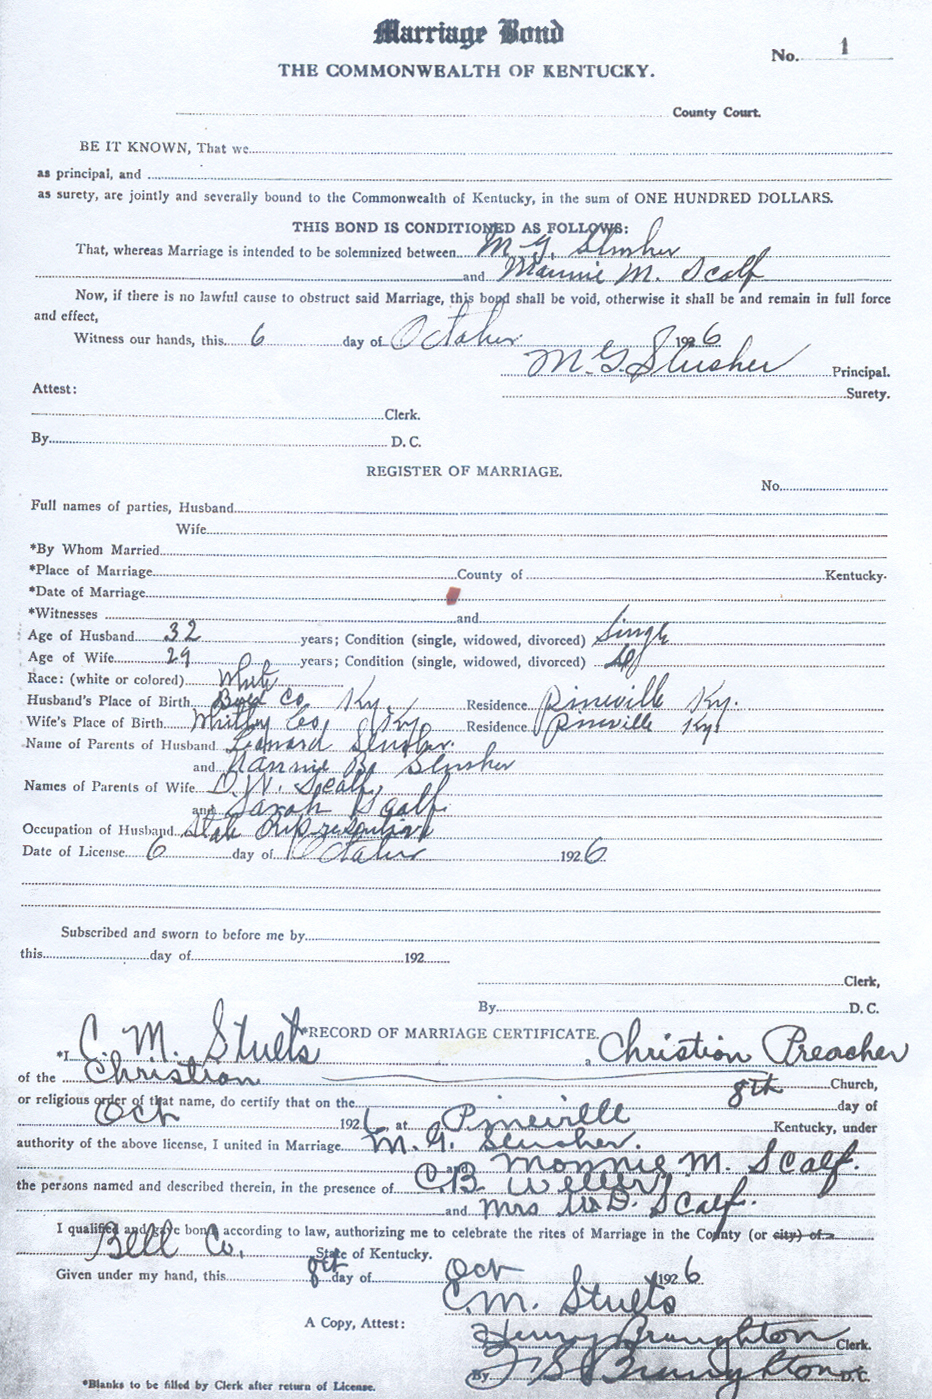 Marriage Bond
No. 1
THE COMMONWEALTH OF KENTUCKY.
County Court.
BE IT KNOWN, That we
as principal, and
as surety, are jointly and severally bound to the Commonwealth of Kentucky, in the sum of ONE HUNDRED DOLLARS.
THIS BOND IS CONDITIONED AS FOLLOWS:
That, whereas Marriage is intended to be solemnized between M. G. Slusher
and Mannie M. Scalf
Now, if there is no lawful cause to obstruct said Marriage, this bond shall be void, otherwise it shall be and remain in full force
and effect,
Witness our hands, this 6 day of October 1926
M. G. Slusher Principal.
Attest: Surety.
Clerk.
By D. C.
REGISTER OF MARRIAGE.
No.
Full names of parties, Husband
Wife
*By Whom Married
*Place of Marriage County of Kentucky.
*Date of Marriage
*Witnesses and
Age of Husband 32 years; Condition (single, widowed, divorced) Single
Age of Wife 29 years; Condition (single, widowed, divorced)
Race: (white or colored) White
Husband's Place of Birth Bell Co. Ky. Residence Pineville Ky.
Wife's Place of Birth Whitley Co. Ky. Residence Pineville Ky.
Name of Parents of Husband Leonard Slusher.
and Nannie B. Slusher
Names of Parents of Wife D. W. Scalf,
and Sarah Scalf.
Occupation of Husband State Representative
Date of License 6 day of October 1926.
Subscribed and sworn to before me by
this day of 192
Clerk,
By D. C.
*RECORD OF MARRIAGE CERTIFICATE.
*I C. M. Stults a Christion Preacher
of the Christion Church,
or religious order of that name, do certify that on the 8th day of
Oct 1926 at Pineville Kentucky, under
authority of the above license, I united in Marriage M. G. Slusher.
Monnie M. Scalf.
the persons named and described therein, in the presence of C. B. Weller
and Mrs W. D. Scalf.
I qualified and gave bond according to law, authorizing me to celebrate the rites of Marriage in the County (or city) of
Bell Co. State of Kentucky.
Given under my hand, this 8th day of Oct 1926.
C. M. Stults
A Copy, Attest: Henry Broughton Clerk.
By Broughton D.C.
*Blanks to be filled by Clerk after return of License.